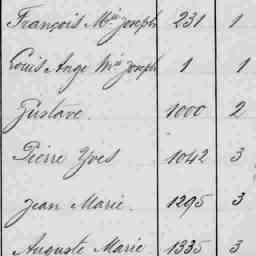 François Mie Joseph 231 1
Louis Ange Mie Joseph 1 1
Gustave. 1000 2
Pierre Yves 1042 3
Jean Marie. 1295 3
Auguste Marie 1335 3